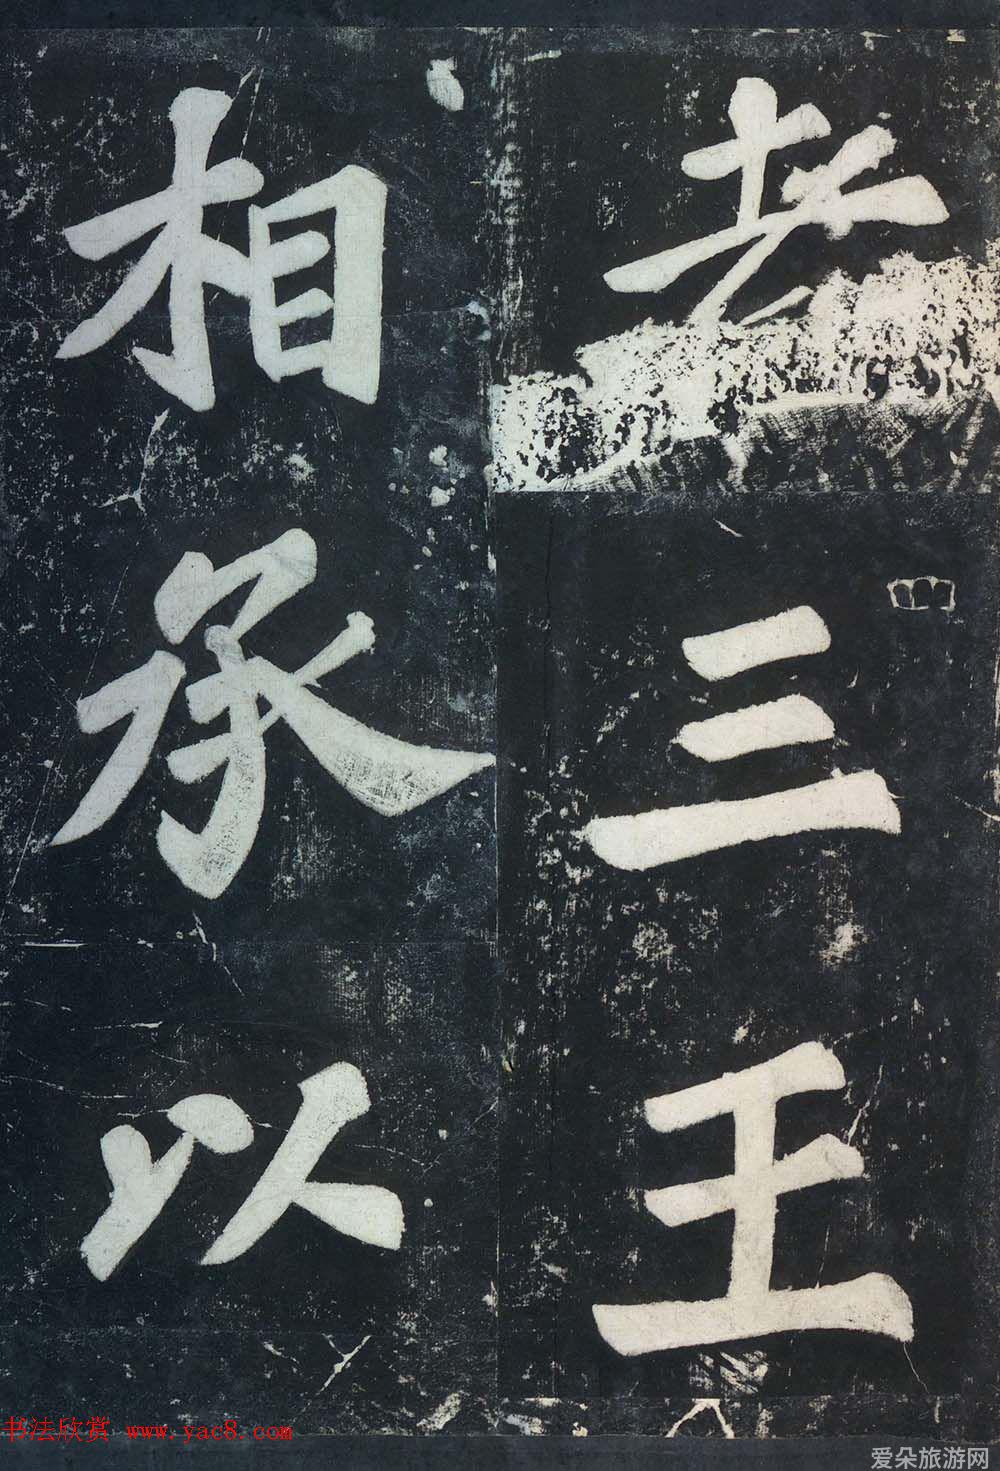 三王
相承以
书法欣赏 www.yac8.com
爱朵旅游网